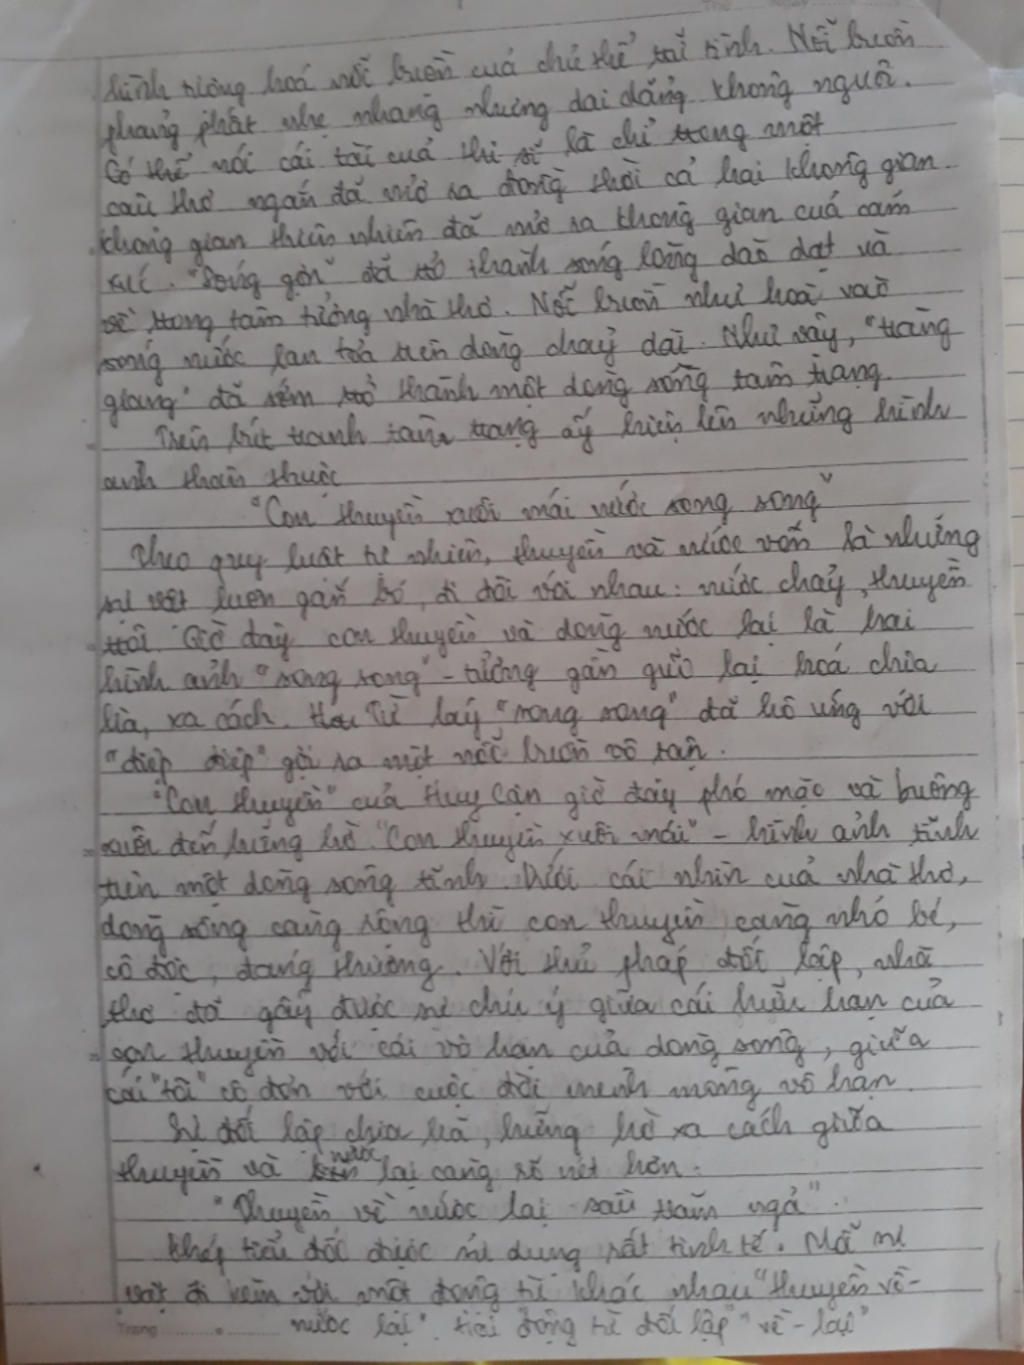 hình tượng hoá nỗi buồn của chủ thể trữ tình. Nỗi buồn
phảng phất nhẹ nhàng nhưng dai dẳng không nguôi.
Có thể nói cái tài của thi sĩ là chỉ trong một
câu thơ ngắn đã mở ra đồng thời cả hai không gian
không gian thiên nhiên đã mở ra không gian của cảm
xúc. "Sóng gợn" đã trở thành sóng lòng dào dạt và
về trong tâm tưởng nhà thơ. Nỗi buồn như hoà vào
sóng nước lan toả trên dòng chảy dài. Như vậy, "tràng
giang" đã sớm trở thành một dòng sông tâm trạng.
Trên bức tranh tâm trạng ấy hiện lên những hình
ảnh thân thuộc
"Con thuyền xuôi mái nước song song"
Theo quy luật tự nhiên, thuyền và nước vốn là những
sự vật luôn gắn bó, đi đôi với nhau: nước chảy, thuyền
trôi. Giờ đây con thuyền và dòng nước lại là hai
hình ảnh "song song" - tưởng gần gũi lại hoá chia
lìa, xa cách. Từ láy "song song" đã hô ứng với
"điệp điệp" gợi ra một nỗi buồn vô tận.
"Con thuyền" của Huy Cận giờ đây phó mặc và buông
xuôi đến hững hờ "Con thuyền xuôi mái" - hình ảnh tĩnh
trên một dòng sông tĩnh. Dưới cái nhìn của nhà thơ,
dòng sông càng rộng thì con thuyền càng nhỏ bé,
cô độc, đáng thương. Với thủ pháp đối lập, nhà
thơ đã gây được sự chú ý giữa cái hữu hạn của
con thuyền với cái vô hạn của dòng sông, giữa
cái "tôi" cô đơn với cuộc đời mênh mông vô hạn.
Sự đối lập chia lìa, hững hờ xa cách giữa
thuyền và nước lại càng rõ nét hơn.
"Thuyền về nước lại sầu trăm ngả".
Phép tiểu đối được sử dụng rất tinh tế. Mỗi sự
vật đi kèm với một động từ khác nhau "thuyền về-
nước lại". Hai động từ đối lập "về - lại"